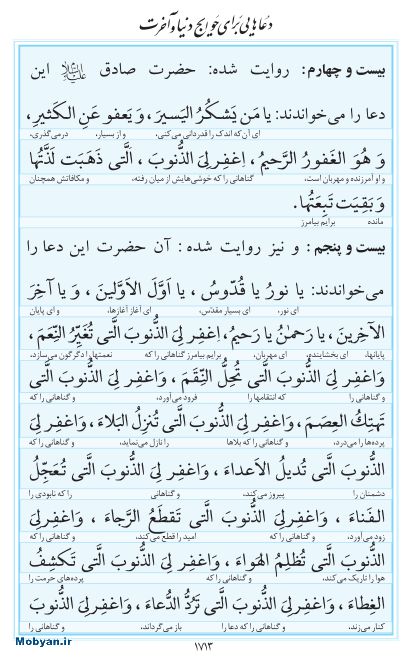 دعاهایی برای حوایج دنیا و آخرت
بیست و چهارم: روایت شده: حضرت صادق علیه‌السلام این
دعا را می‌خواندند: یا مَن یَشکُرُ الیَسیرَ، وَ یَعفو عَنِ الکَثیرِ،
ای آن‌که اندک را قدردانی می‌کنی، و از بسیار، درمی‌گذری،
وَ هُوَ الغَفورُ الرَّحیمُ، اِغفِر لِیَ الذُّنوبَ، الَّتی ذَهَبَت لَذَّتُها
و او آمرزنده و مهربان است، گناهانی را که خوشی‌هایش از میان رفته، و مکافاتش همچنان
وَ بَقِیَت تَبِعَتُها.
مانده برایم بیامرز
بیست و پنجم: و نیز روایت شده: آن حضرت این دعا را
می‌خواندند: یا نورُ یا قُدّوسُ، یا اَوَّلَ الاَوَّلینَ، وَ یا آخِرَ
ای نور، ای بسیار مقدّس، ای آغاز آغازها، و ای پایان
الآخِرینَ، یا رَحمٰنُ یا رَحیمُ، اِغفِر لِیَ الذُّنوبَ الَّتی تُغَیِّرُ النِّعَمَ،
پایانها، ای بخشاینده، ای مهربان، برایم بیامرز گناهانی را که نعمتها را دگرگون می‌سازد،
وَاغفِر لِیَ الذُّنوبَ الَّتی تُحِلُّ النِّقَمَ، وَاغفِر لِیَ الذُّنوبَ الَّتی
و گناهانی را که انتقامها را فرود می‌آورد، و گناهانی را که
تَهتِکُ العِصَمَ، وَاغفِر لِیَ الذُّنوبَ الَّتی تُنزِلُ البَلاءَ، وَاغفِر لِیَ
پرده‌ها را می‌درد، و گناهانی را که بلاها را نازل می‌نماید، و گناهانی را که
الذُّنوبَ الَّتی تُدیلُ الاَعداءَ، وَاغفِر لِیَ الذُّنوبَ الَّتی تُعَجِّلُ
دشمنان را پیروز می‌کند، و گناهانی را که نابودی را
الفَناءَ، وَاغفِر لِیَ الذُّنوبَ الَّتی تَقطَعُ الرَّجاءَ، وَاغفِر لِیَ
زود می‌آورد، و گناهانی را که امید را قطع می‌کند، و گناهانی را که
الذُّنوبَ الَّتی تُظلِمُ الهَواءَ، وَاغفِر لِیَ الذُّنوبَ الَّتی تَکشِفُ
هوا را تاریک می‌کند، و گناهانی را که پرده‌های حرمت را
الغِطاءَ، وَاغفِر لِیَ الذُّنوبَ الَّتی تَرُدُّ الدُّعاءَ، وَاغفِر لِیَ الذُّنوبَ
کنار می‌زند، و گناهانی را که دعا را باز می‌گرداند، و گناهانی را
۱۷۱۳
Mobyan.ir